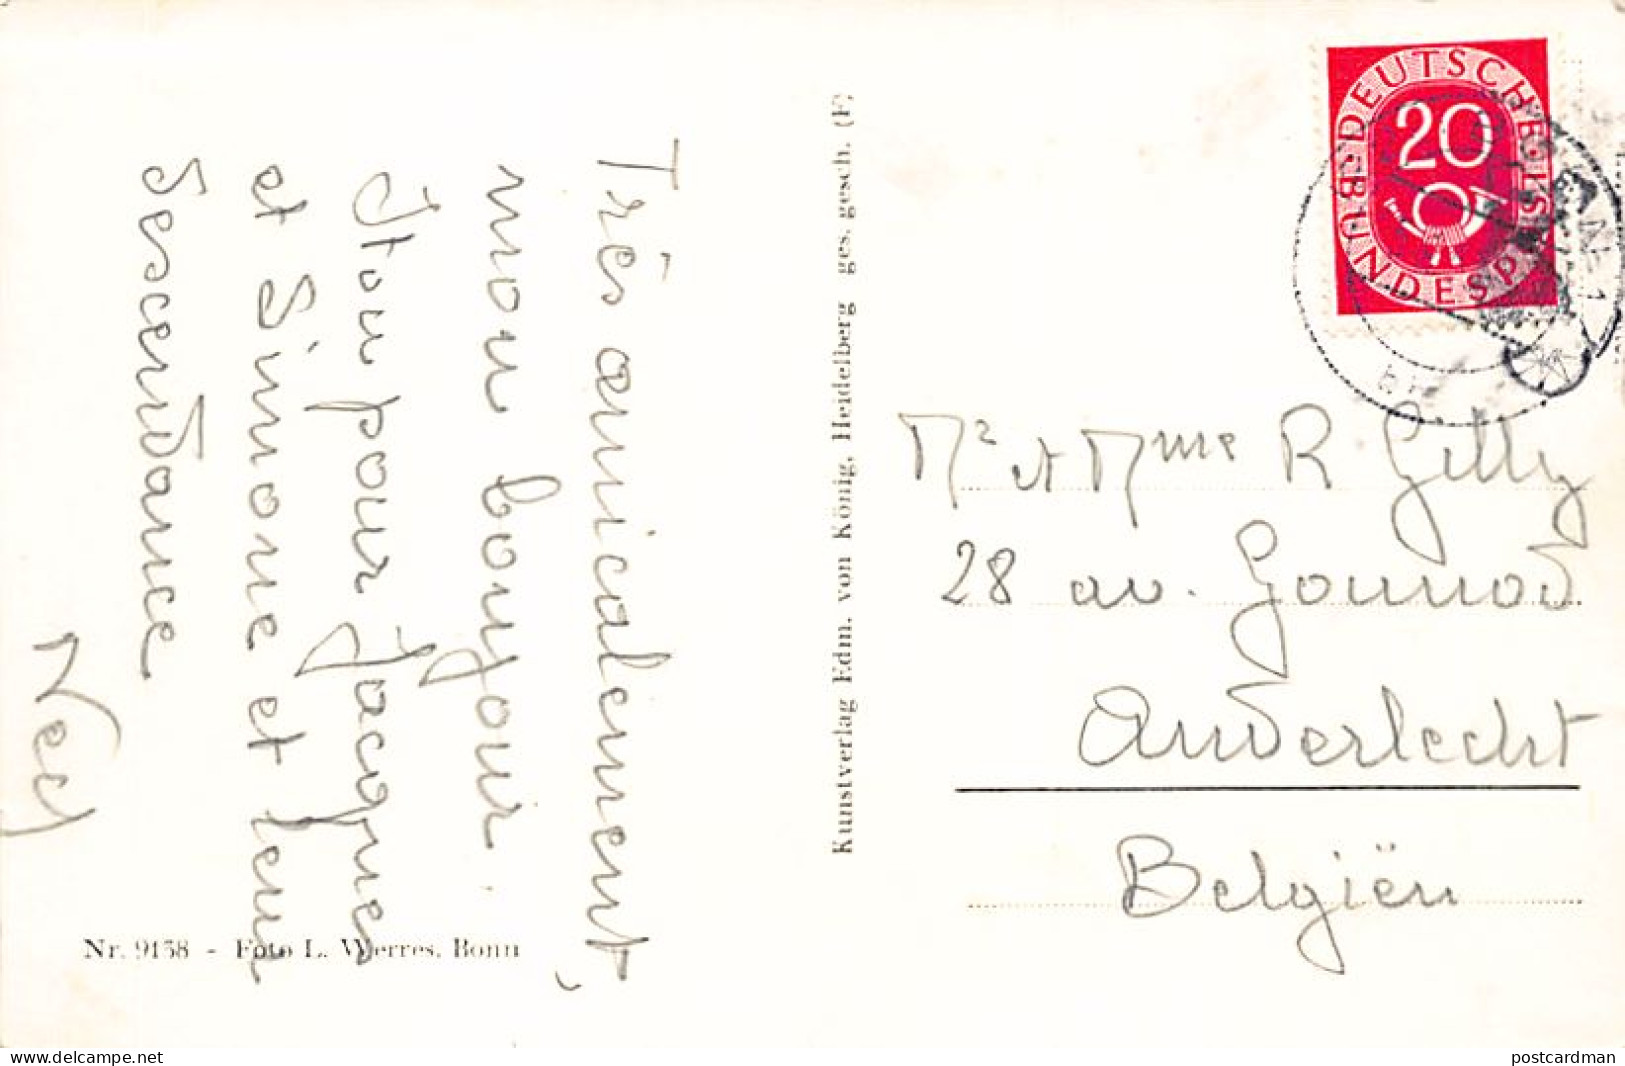 Très amicalement,
mon bonjour.
Itou pour Jacques
et Simone et leur
descendance
Kunstverlag Edm. von König, Heidelberg ges. gesch. (F)
DEUTSCHE BUNDESPOST
20
Mr et Mme R Gilly
28 av. Gounod
Anderlecht
Belgiën
Nr. 9158 - Foto L. Werres, Bonn
www.delcampe.net
postcardman